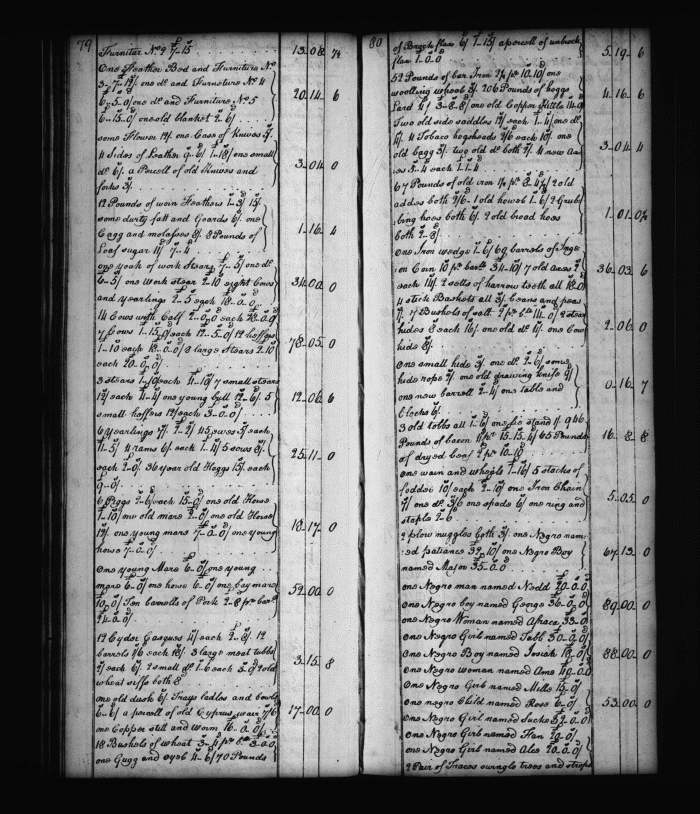 79
Furniter No 2 £7-15 13.08 7½
One Feather Bed and Furniture No
3-7-12/ one do and Furneture No 4
6-5-0/ one do and Furniture No 5 20-14-6
6-15-0/ one old blanket 2-6/
some Flower 12/. one Case of Knives 3/.
4 Sides of Leather 9-6/ 1-18/ one small
do 6/. a Parcell of old Knives and 3-04 0
forks 3/.
12 Pounds of worn Feathers 1-3/ 15/.
some durty fatt and Goards 6/. one
Cagg and molasses 8/. 8 Pounds of 1-16-4
Loaf sugar 11/ 7-4
one yoak of work Stears 7-5/ one do
6-5/ one work stear 2-10 eight Cows 34.00 0
and yearlings 2-5 each 18-0-0
14 Cows with Calf 2-0-0 each 28-0-0
7 Cows 1-15-0/ each 12-5-0/ 12 heffers
1-10 each 18-0-0/ 8 large stears 2-10 78-05 0
each 20-0-0/
3 stears 1-10/ each 4-10/ 7 small stears
12/ each 4-4/ one young bull 12-6/ 5 12-06 6
small heffers 12/ each 3-0-0/
6 yearlings 7/. 2-2/ 45 ewes 5/ each
11-5/ 4 rams 6/. each 1-4/ 5 sows 8/.
each 2-0/. 36 year old Hoggs 15/. each 25-11 0
9-0/
6 Piggs 2-6/ each 15-0/ one old Horse
1-10/ one old mare 2-0/ one old Horse
12/. one young mare 7-0-0/ one young 18-17 0
horse 7-0-0/
One young Mare 6-0/ one young
mare 6-0/ one horse 6-0/ one bay mare
10-0/ Ten barrells of Pork 2-8/ pr barl 52-00 0
24-0-0/
12 Cyder Casques 4/ each 2-8/. 12
barrels 1/6 each 18/. 3 large meat tubbs
7/ each 6/. 2 small do 1-6 each 3-0 2 old 3-15 8
wheat siffs both 8
one old dusk 6/ Trays ladles and bowls
6-6/ a parcell of old Cyprus ware 7/6
one Copper still and worm 16-0-0/ 17-00 0
18 Bushels of wheat 3-4 pr bl 3-0-0
one Gugg and oyel 4-6/ 70 Pounds
80
of Brock flax 6/ 1-15/ a parcell of unbrock
flax 1-0-0 5-19-6
52 Pounds of bar Iron 2½ pr 10-10/ one
woolling wheel 3/. 206 Pounds of hoggs
Lard 4/ 3-8-8/ one old Copper Kittle 14-0 4-16-6
Two old side saddles 12/ each 1-4/ one do
12/. 4 Tobaco hogsheads 2/6 each 10/. one
old bagg 3/. two old do both 2/. 4 new Ax- 3-04 4
es 3-4 each 1-1-4
67 Pounds of old iron 1½ pr 8-4½/ 2 old
addses both 2/6-1 old howel 1-6/ 2 Grub
bing hoes both 6/. 2 old broad hoes 1-01.0½
both 2-8/.
One Iron wedge 1-6/ 69 barrels of Inge
on Corn 10 pr barl 34-10/ 7 old axes 2/
each 14/. 2 setts of harrow teeth all 18-0 36-03 6
4 stick Baskets all 3/. beans and peas
7/. 7 Bushels of salt 2 pr bl 14-0/ 2 stear
hides 8 each 16/. one old do 4/. one Cow 2-06 0
hide 8/.
One small hide 3/. one do 2-6/ some
hide rope 2/. one old drawing knife 2/
one new barrell 2-4/ one table and 0-16-7
blocks 6/.
3 old tobbs all 1-6/ one fix stand 1/. 946
Pounds of bacon 4 pr 15-15-4/ 65 Pounds 16-8 8
of dryed beaf 2 pr 10-10
one wain and wheels 1-16/ 5 stacks of
fodder 10/ each 2-10/ one Iron Chain
7/ one do 3/6 one spade 6/ one ring and 5-05 0
staple 2-6
2 plow nuggles both 3/. one Negro nam
ed patiance 32-10/ one Negro Boy 67-13-0
named Major 35-0-0
one Negro man named Nedd 20-0-0
one Negro boy named George 36-0-0 89.00 0
one Negro Woman named Afraca 33-0
One Negro Girl named Tabb 50-0-0
one Negro Boy named Josiah 18-0 88-00 0
one Negro woman named Ame 40-0-0
One Negro Girl named Mille 15-0
one negro Child named Rose 6-0/ 53-00 0
one Negro Girl named Sucke 32-0-0
One Negro Girl named Fan 20-0
one Negro Girl named Alce 20-0-0
2 Pair of Traces swingle trees and strops